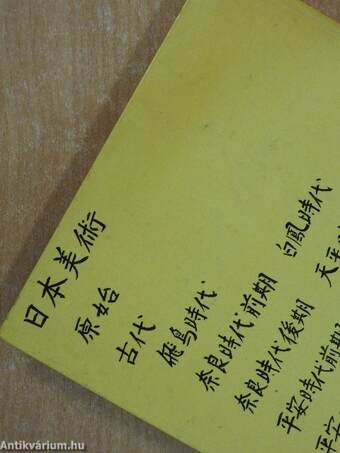 日本美術
原始
古代
飛鳥時代
奈良時代前期 白鳳時代
奈良時代後期 天平時
平安時代前期
平安
Antikvárium.hu